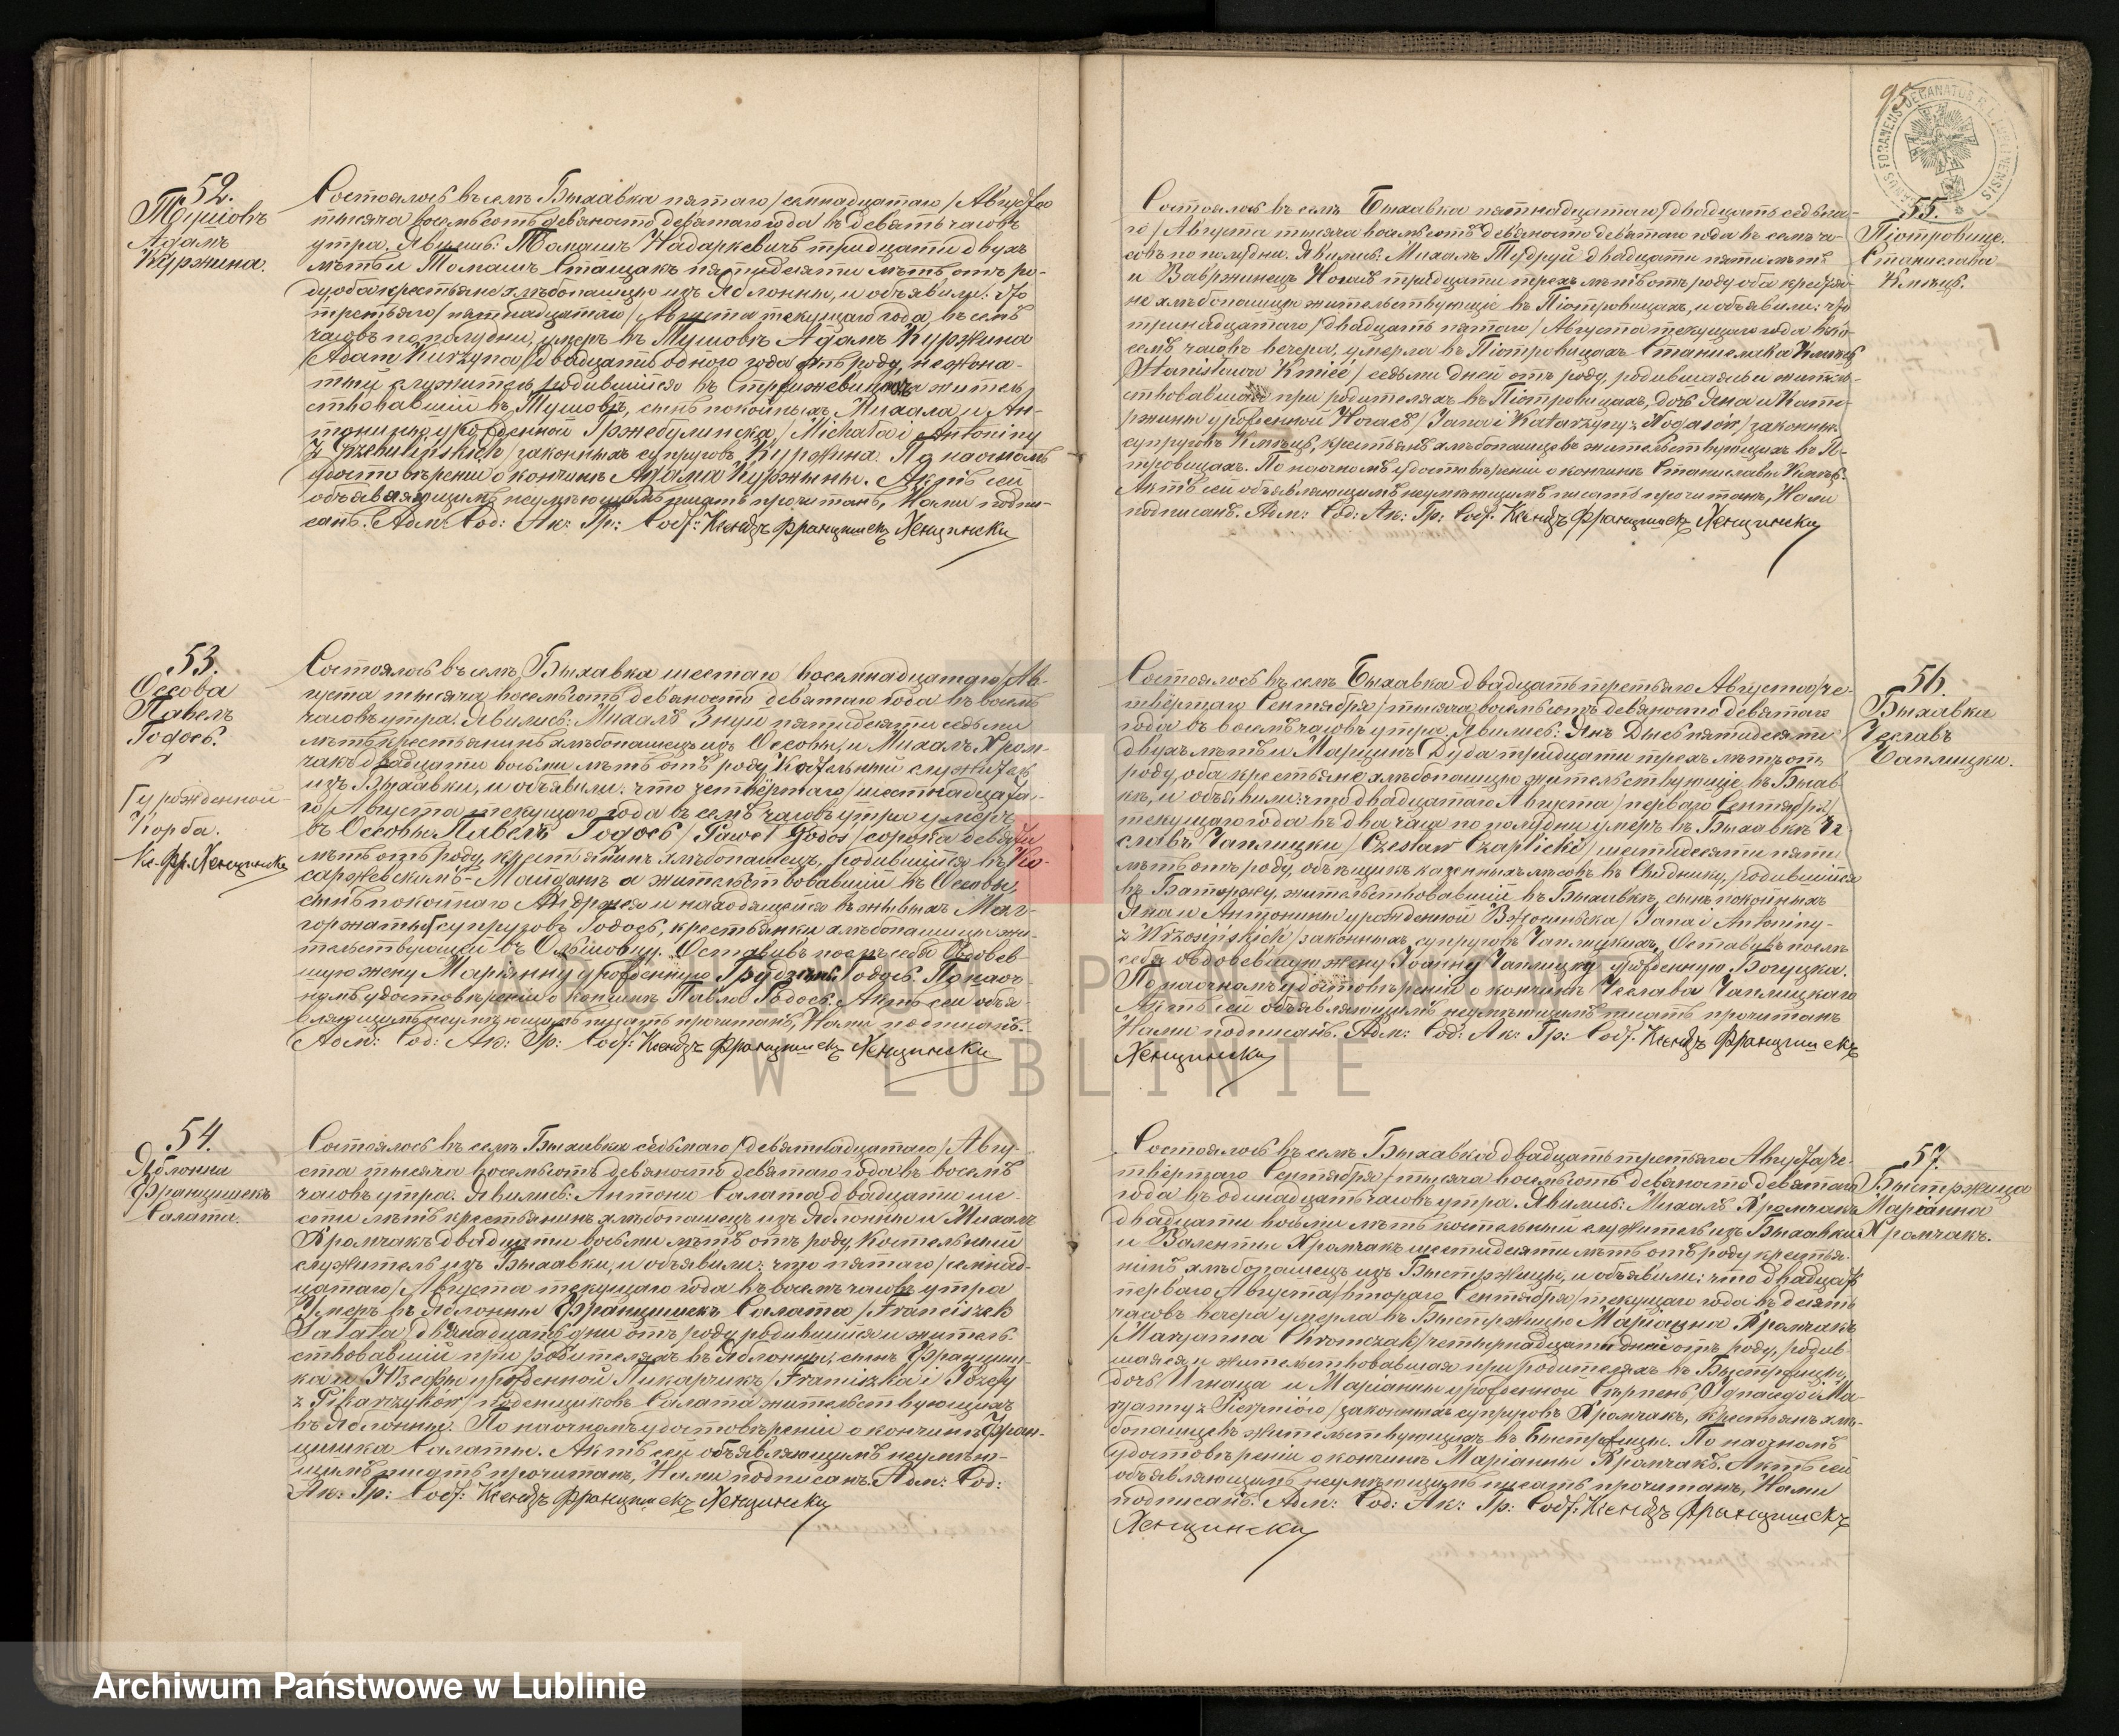 52.
Тушовъ
Адамъ
Куржина.
Состоялось въ селѣ Быхавка пятаго /семнадцатаго/ Августа
тысяча восемьсотъ девяносто девятаго года въ девять часовъ
утра. Явились: Томашъ Надаркевичъ тридцати двухъ
лѣтъ и Томашъ Сташакъ пятидесяти лѣтъ отъ ро-
ду, оба крестьяне хлѣбопашцы изъ Яблонны, и объявили: что
третьяго /пятнадцатаго/ Августа текущаго года, въ семь
часовъ по полудни, умеръ въ Тушовѣ Адамъ Куржина
/Adam Kurzyna/ двадцать одного года отъ роду, нежона-
тый служитель, родившійся въ житель-
ствовавшій въ Тушовѣ, сынъ покойныхъ Михала и Ан-
тонины урожденной Гржебулинска /Michała i Antoniny
z Grzebulińskich/ законныхъ супруговъ Куржина. По наочномъ
удостовѣреніи о кончинѣ Адама Куржины. Актъ сей
объявляющимъ неумѣющимъ писать прочитанъ, Нами подпи-
санъ. Адм: Сод: Ак: Гр: Сост: Ксендзъ Францишекъ Хенцински
53.
Оссова
Павелъ
Годось.
урожденной
Корба.
Кс. Фр. Хенцински
Состоялось въ селѣ Быхавка шестаго /восемнадцатаго/ Ав-
густа тысяча восемьсотъ девяносто девятаго года въ восемь
часовъ утра. Явились: Михалъ Знуй пятидесяти седьми
лѣтъ крестьянинъ хлѣбопашецъ изъ Оссовы, и Михалъ Хром-
чакъ двадцати восьми лѣтъ отъ роду Костельный служитель
изъ Быхавки, и объявили: что четвертаго /шестнадцата-
го/ Августа текущаго года въ семь часовъ утра умеръ
въ Оссовы Павелъ Годось /Paweł Godoś/ сорока девяти
лѣтъ отъ роду, крестьянинъ хлѣбопашецъ, родившійся въ Ко-
саржевскимъ-Майданѣ а жительствовавшій въ Оссовы,
сынъ покойнаго Андржея и находящейся въ живыхъ Мал-
горжаты супруговъ Годось, крестьянки хлѣбопашицы жи-
тельствующей въ Ольшовцу. Оставивъ послѣ себя овдовев-
шую жену Маріянну урожденную Годось. По наоч-
номъ удостовѣреніи о кончинѣ Павла Годось. Актъ сей объя-
вляющимъ неумѣющимъ писать прочитанъ, Нами подписанъ.
Адм: Сод: Ак: Гр: Сост: Ксендзъ Францишекъ Хенцински
54.
Яблонна
Францишекъ
Салата.
Состоялось въ селѣ Быхавка седьмаго /девятнадцатаго/ Авгу-
ста тысяча восемьсотъ девяносто девятаго года въ восемь
часовъ утра. Явились: Антони Салата двадцати ше-
сти лѣтъ крестьянинъ хлѣбопашецъ изъ Яблонны и Михалъ
Хромчакъ двадцати восьми лѣтъ отъ роду, Костельный
служитель изъ Быхавки, и объявили: что пятаго /семнад-
цатаго/ Августа текущаго года въ восемь часовъ утра
Умеръ въ Яблонны Францишекъ Салата /Franciszek
Sałata/ двѣнадцать дни отъ роду, родившійся и житель-
ствовавшій при родителяхъ въ Яблонны, сынъ Францищ-
ка и Юзефы урожденной Пикарчикъ /Franciszka i Józefy
z Pikarzyków/ поденщиковъ Салата жительствующихъ
въ Яблонны. По наочномъ удостовѣреніи о кончинѣ Фран-
цишка Салаты. Актъ сей объявляющимъ неумѣю-
щимъ писать прочитанъ, Нами подписанъ. Адм: Сод:
Ак: Гр: Сост: Ксендзъ Францишекъ Хенцински
95
55.
Піотровице.
Станислава
Кмѣць.
Состоялось въ селѣ Быхавка пятнадцатаго /двадцать седьма-
го/ Августа тысяча восемьсотъ девяносто девятаго года въ семь ча-
совъ по полудни. Явились: Михалъ Тудруй двадцати пяти лѣтъ
и Вавржинецъ Ногась тридцати трехъ лѣтъ отъ роду, оба крестья-
не хлѣбопашцы жительствующіе въ Піотровицахъ, и объявили: что
тринадцатаго /двадцать пятаго/ Августа текущаго года въ во-
семь часовъ вечера, умерла въ Піотровицахъ Станислава Кмѣць
/Stanisława Kmieć/ седьми дней отъ роду, родившаяся и житель-
ствовавшая при родителяхъ въ Піотровицахъ, дочь Яна и Ката-
ржины урожденной Ногась /Jana i Katarzyny z Nogasiów/ законныхъ
супруговъ Кмѣць, крестьянъ хлѣбопашцевъ жительствующихъ въ Піо-
тровицахъ. По наочномъ удостовѣреніи о кончинѣ Станиславы Кмѣць.
Актъ сей объявляющимъ неумѣющимъ писать прочитанъ, Нами
подписанъ. Адм: Сод: Ак: Гр: Сост: Ксендзъ Францишекъ Хенцински
56.
Быхавка
Чеславъ
Чаплицки.
Состоялось въ селѣ Быхавка двадцать третьяго Августа /че-
твертаго Сентября/ тысяча восемьсотъ девяносто девятаго
года въ восемь часовъ утра. Явились: Янъ Днесь пятидесяти
двухъ лѣтъ и Марцинъ Дуда тридцати трехъ лѣтъ отъ
роду, оба крестьяне хлѣбопашцы жительствующіе въ Быхав-
кѣ, и объявили: что двадцатаго Августа /перваго Сентября/
текущаго года въ два часа по полудни умеръ въ Быхавкѣ Че-
славъ Чаплицки /Czesław Czaplicki/ шестидесяти пяти
лѣтъ отъ роду, объѣзщикъ казенныхъ лѣсовъ въ Свиднику, родившійся
въ Баторжу, жительствовавшій въ Быхавкѣ, сынъ покойныхъ
Яна и Антонины урожденной Вржосиньска /Jana i Antoniny
z Wrzosińskich/ законныхъ супруговъ Чаплицкихъ, Оставивъ послѣ
себя овдовевшую жену Іоанну Чаплицку урожденную Богуцка.
По наочномъ удостовѣреніи о кончинѣ Чеслава Чаплицкаго
Актъ сей объявляющимъ неумѣющимъ писать прочитанъ
Нами подписанъ. Адм: Сод: Ак: Гр: Сост: Ксендзъ Францишекъ
Хенцински
57.
Быстржица
Маріанна
Хромчакъ.
Состоялось въ селѣ Быхавкѣ двадцать третьяго Августа /че-
твертаго Сентября/ тысяча восемьсотъ девяносто девятаго
года въ одинадцать часовъ утра. Явились: Михалъ Хромчакъ
двадцати восьми лѣтъ костельный служитель изъ Быхавки
и Валенты Хромчакъ шестидесяти лѣтъ отъ роду крестья-
нинъ хлѣбопашецъ изъ Быстржицы, и объявили: что двадцать
перваго Августа /втораго Сентября/ текущаго года въ десять
часовъ вечера умерла въ Быстржицы Маріанна Хромчакъ
/Maryanna Chromczak/ четырнадцати дней отъ роду, родив-
шаяся и жительствовавшая при родителяхъ въ Быстржицы,
дочь Игнаца и Маріанны урожденной Сѣрпень /Ignacego i Ma-
ryanny z Sierpniów/ законныхъ супруговъ Хромчакъ, крестьянъ хлѣ-
бопашцевъ жительствующихъ въ Быстржицы. По наочномъ
удостовѣреніи о кончинѣ Маріанны Хромчакъ. Актъ сей
объявляющимъ неумѣющимъ писать прочитанъ, Нами
подписанъ. Адм: Сод: Ак: Гр: Сост: Ксендзъ Францишекъ
Хенцински
ARCHIWUM PAŃSTWOWE
W LUBLINIE
Archiwum Państwowe w Lublinie